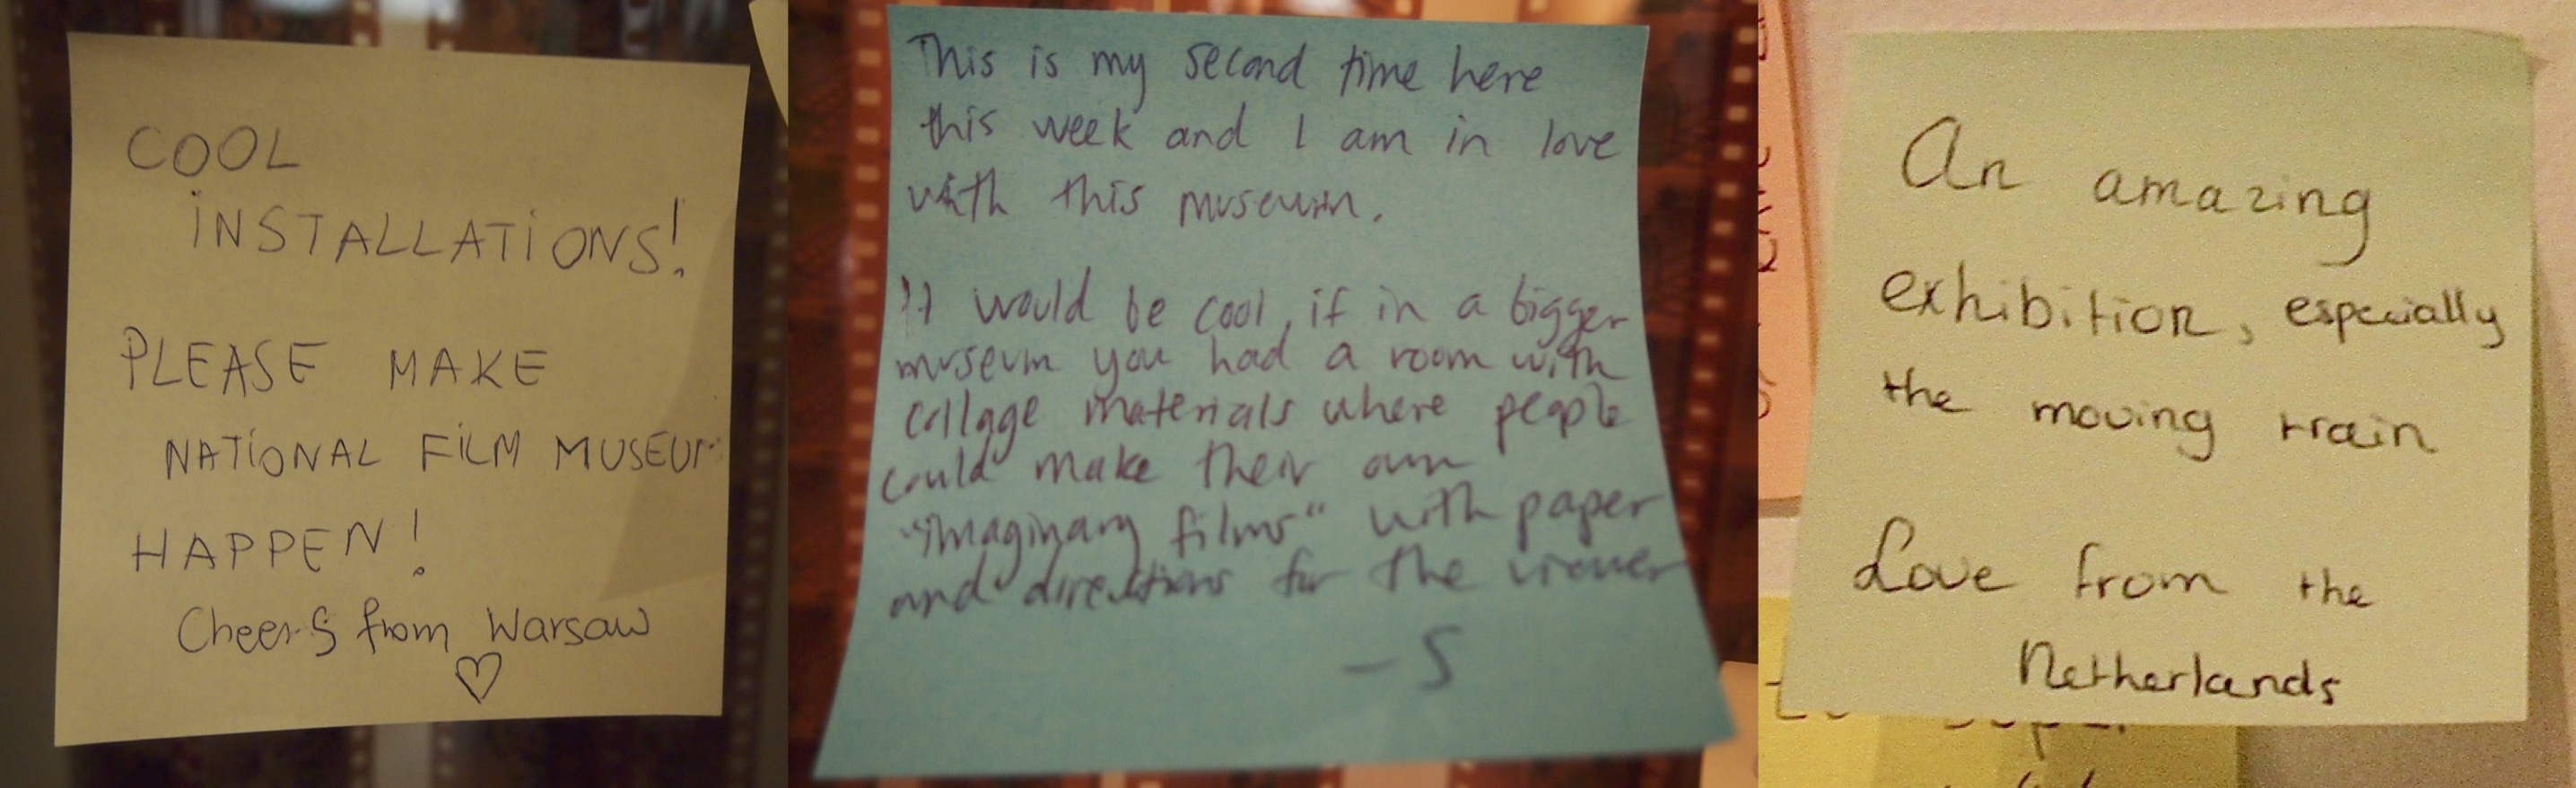 COOL
INSTALLATIONS!
PLEASE MAKE
NATIONAL FILM MUSEUM
HAPPEN!
Cheers from Warsaw
♡
This is my second time here
this week and I am in love
with this museum.
It would be cool, if in a bigger
museum you had a room with
collage materials where people
could make their own
"imaginary films" with paper
and directions for the viewer
— S
An amazing
exhibition, especially
the moving train
Love from the
Netherlands